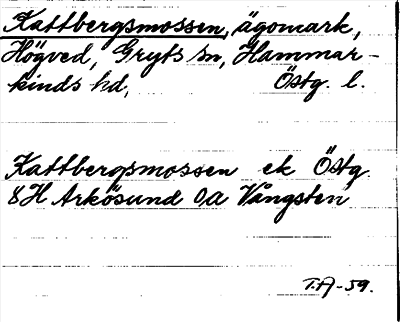 Kattbergsmossen, ägomark,
Högved, Gryts sn, Hammar-
kinds hd, Östg. l.
Kattbergsmossen ek Östg.
8H Arkösund 0a Vångsten
T.A-59.